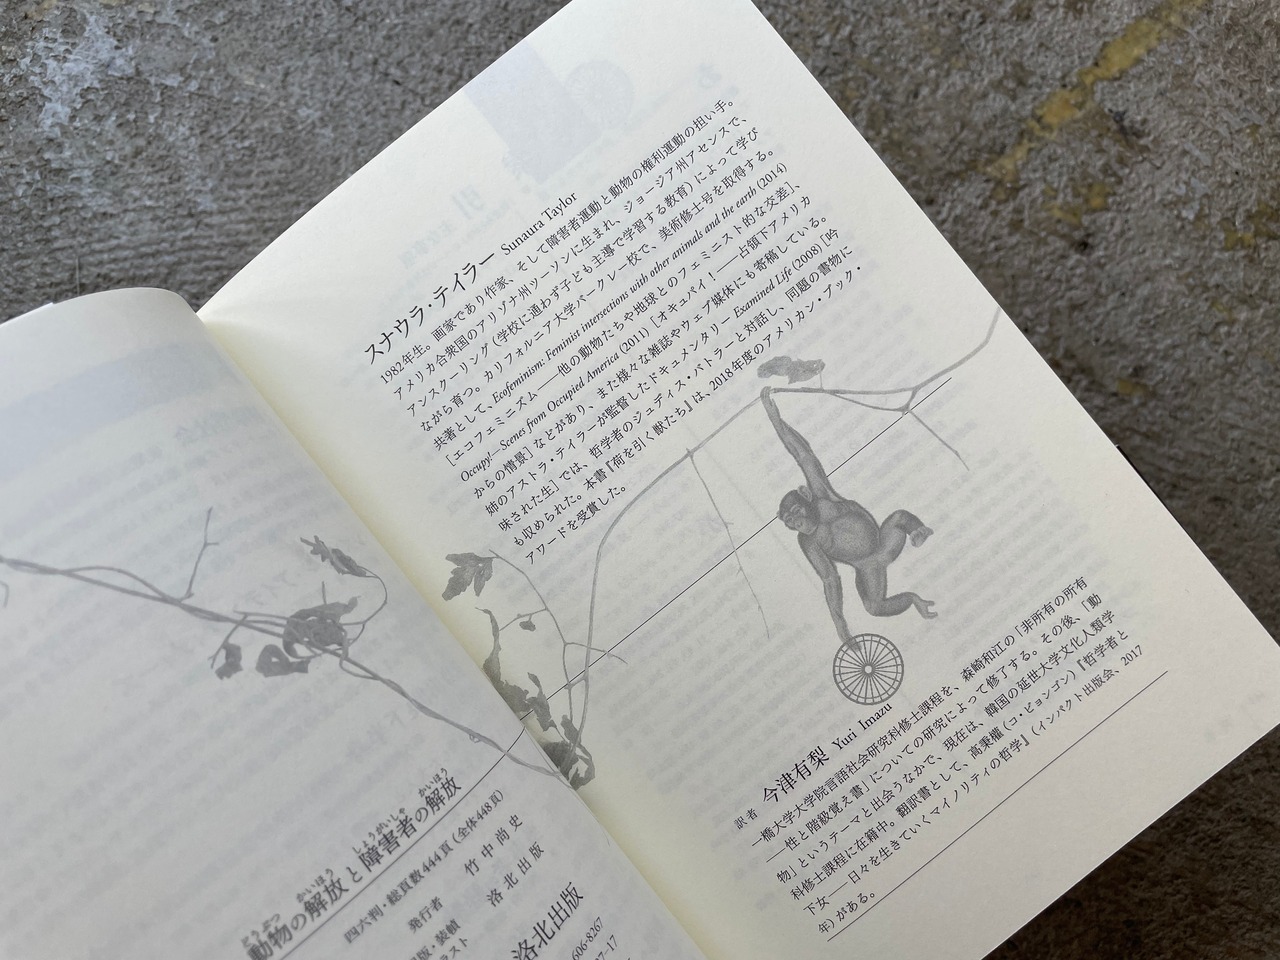 スナウラ・テイラー Sunaura Taylor
1982年生。画家であり作家、そして障害者運動と動物の権利運動の担い手。
アメリカ合衆国のアリゾナ州ツーソンに生まれ、ジョージア州アセンスで、
アンスクーリング（学校に通わず子ども主導で学習する教育）によって学び
ながら育つ。カリフォルニア大学バークレー校で、美術修士号を取得する。
共著として、Ecofeminism: Feminist intersections with other animals and the earth (2014)
［エコフェミニズム——他の動物たちや地球とのフェミニスト的な交差］、
Occupy!—Scenes from Occupied America (2011)［オキュパイ！——占領下アメリカ
からの情景］などがあり、また様々な雑誌やウェブ媒体にも寄稿している。
姉のアストラ・テイラーが監督したドキュメンタリー Examined Life (2008)［吟
味された生］では、哲学者のジュディス・バトラーと対話し、同題の書物に
も収められた。本書『荷を引く獣たち』は、2018年度のアメリカン・ブック・
アワードを受賞した。
訳者 今津有梨 Yuri Imazu
一橋大学大学院言語社会研究科修士課程を、森崎和江の「非所有の所有
——性と階級覚え書」についての研究によって修了する。その後、「動
物」というテーマと出会うなかで、現在は、韓国の延世大学文化人類学
科修士課程に在籍中。翻訳書として、高秉權（コ・ビョンゴン）『哲学者と
下女——日々を生きていくマイノリティの哲学』（インパクト出版会、2017
年）がある。
どうぶつ かいほう しょうがいしゃ かいほう
動物の解放と障害者の解放
四六判・総頁数444頁（全体448頁）
発行者 竹中尚史
版・装幀 洛北出版
ラスト
洛北出版
606-8267
7-17